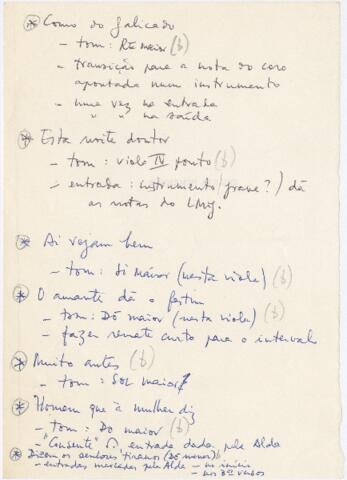 * Como do falicado
- tom: Ré maior (b)
- transição para a nota do coro
apontada num instrumento
- uma vez na entrada
" " na saída
* Esta noite doutor
- tom: viola IV ponto (b)
- entrada: instrumento (grave?) dá
as notas do
* Ai vejam bem
- tom: Si maior (nesta viola) (b)
* O amante dá o festim
- tom: Dó maior (nesta viola) (b)
- fazer remate curto para o interval
* Muito antes (b)
- tom: Sol maior
* Homem que à mulher diz
- tom: Do maior (b)
- "Consente" entrada dada pela Alda
* Dizem os senhores tiranos (Dó menor) b
- entradas marcadas pela Alda - no início
- nos 3os versos